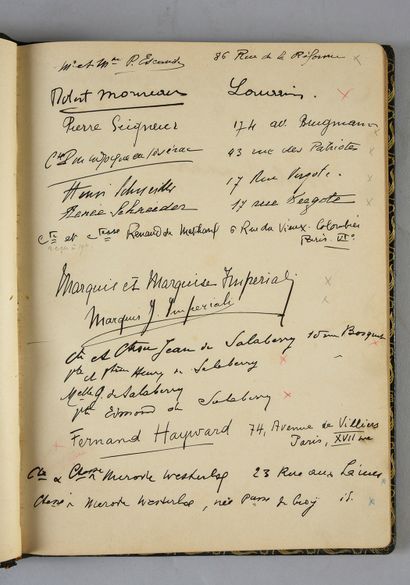 Mr et Mme P. Escaud 86 Rue de la Réforme
Robert Louvain.
Pierre Seigneur 174 av. Brugmann
43 rue des Patriotes
Henri Schneider 17 Rue
Renée Schroeder 17 rue
Cte et Ctesse Renaud de 6 Rue du Vieux-Colombier
Paris. VIe
Marquis et Marquise Imperiali
Marquis J. Imperiali
Cte et Ctesse Jean de Salaberry rue Bosquet
Vte et Vtesse Henry de Salaberry "
Melle G. de Salaberry
Vte Edmond de Salaberry
Fernand Hayward 74, Avenue de Villiers
Paris, XVII me
Cte & Ctesse de Merode Westerloo 23 Rue aux Laines
Ctesse de Merode Westerloo, née de Croÿ id.